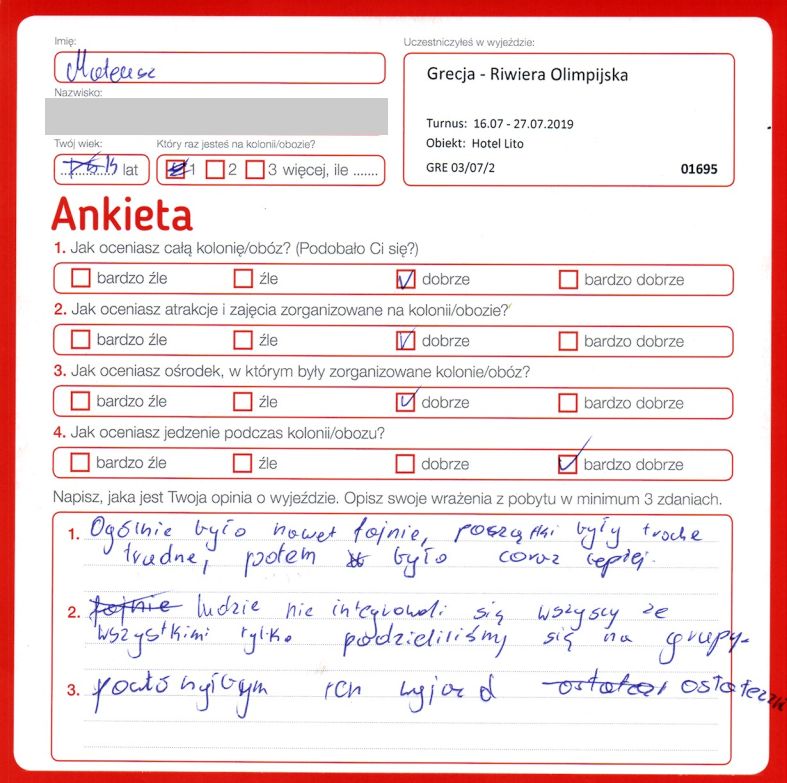 Imię:
Mateusz
Uczestniczyłeś w wyjeździe:
Grecja - Riwiera Olimpijska
Turnus: 16.07 - 27.07.2019
Obiekt: Hotel Lito
GRE 03/07/2 01695
Nazwisko:
Twój wiek:
lat
Który raz jesteś na kolonii/obozie?
1 2 3 więcej, ile .......
Ankieta
1. Jak oceniasz całą kolonię/obóz? (Podobało Ci się?)
bardzo źle źle dobrze bardzo dobrze
2. Jak oceniasz atrakcje i zajęcia zorganizowane na kolonii/obozie?
bardzo źle źle dobrze bardzo dobrze
3. Jak oceniasz ośrodek, w którym były zorganizowane kolonie/obóz?
bardzo źle źle dobrze bardzo dobrze
4. Jak oceniasz jedzenie podczas kolonii/obozu?
bardzo źle źle dobrze bardzo dobrze
Napisz, jaka jest Twoja opinia o wyjeździe. Opisz swoje wrażenia z pobytu w minimum 3 zdaniach.
1. Ogólnie było nawet fajnie, początki były troche
trudne, potem było coraz lepiej.
2. fajnie ludzie nie integrowali się wszyscy ze
wszystkimi tylko podzieliliśmy się na grupy.
3. powtórzyłbym ten wyjazd